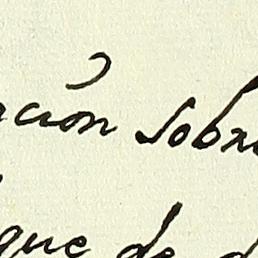 ación sobre
que de d